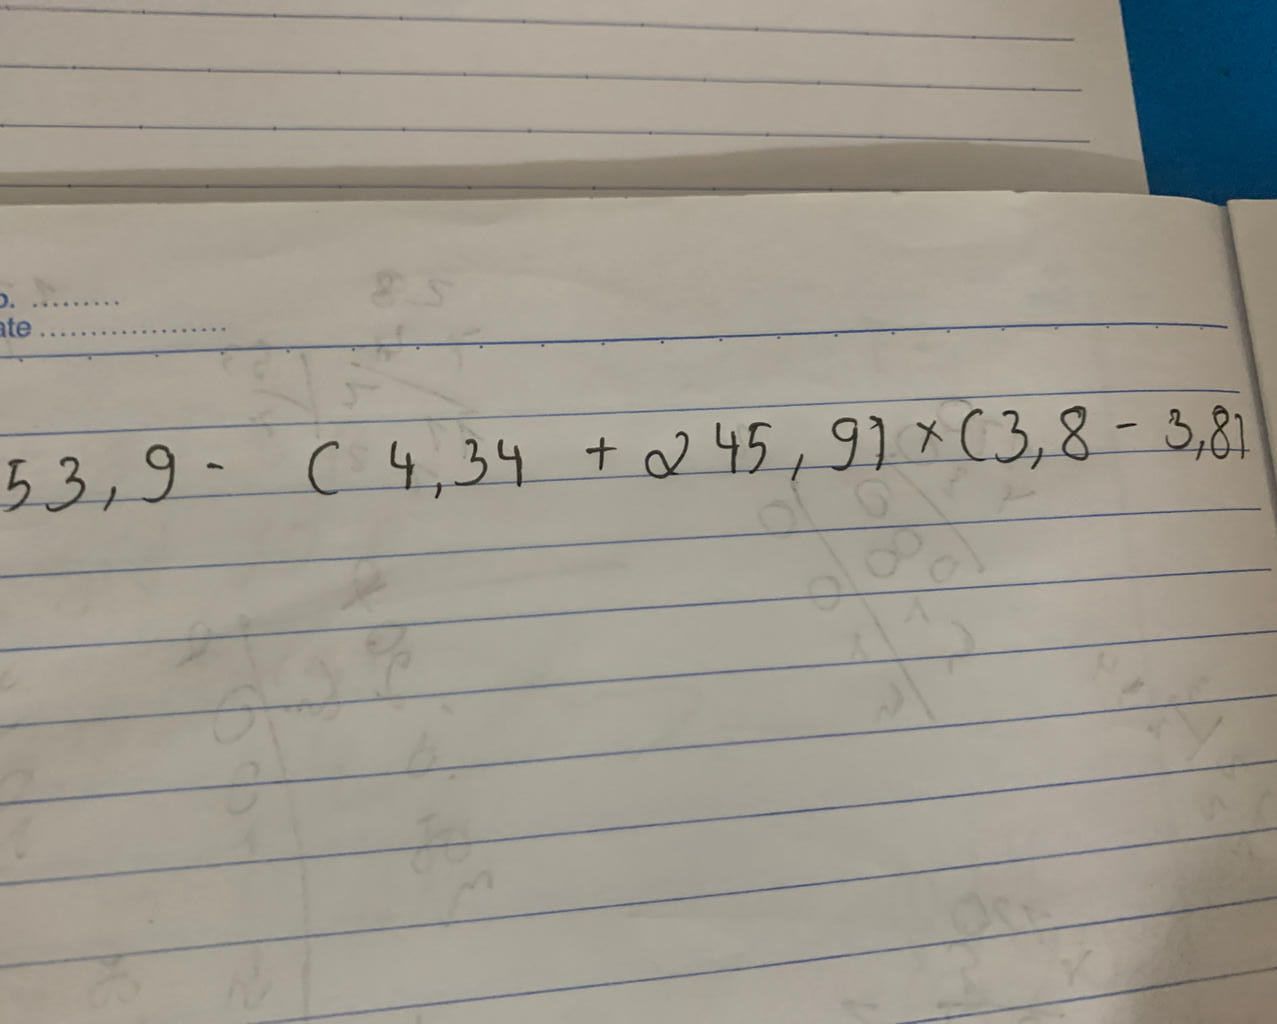 o. .........
ate ...................
53,9 - (4,34 + 245,9) × (3,8 - 3,8)